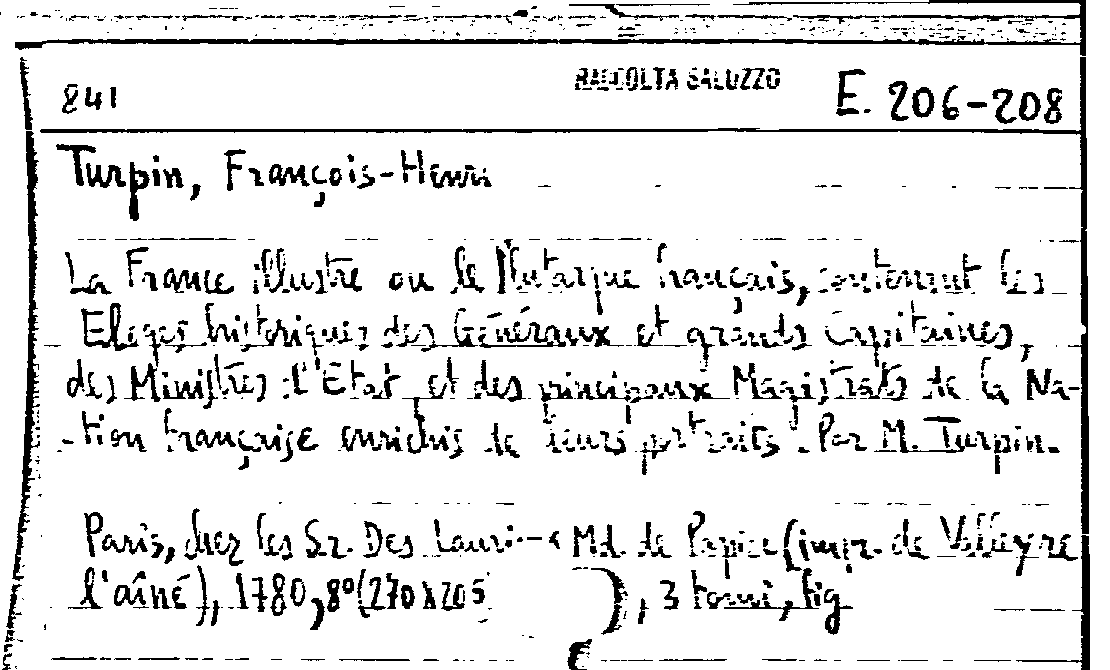 841 RACCOLTA SALUZZO E. 206-208
Turpin, François-Henri
La France illustre ou le Plutarque français, contenant les
Eloges historiques des Généraux et grands Capitaines,
des Ministres d'Etat, et des principaux Magistrats de la Na-
-tion française enrichis de leurs portraits. Par M. Turpin.
Paris, chez les Sr. Des Md. de Papier (impr. de Valleyre
l'aîné), 1780, 8° (270x205 ), 3 tomi, fig